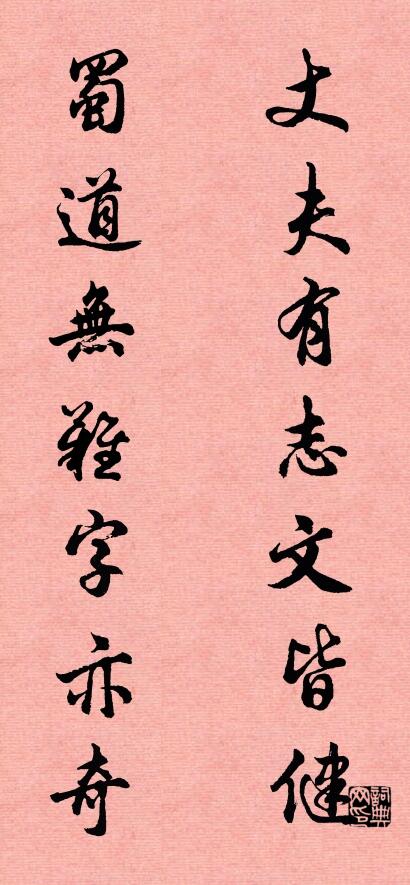 丈夫有志文皆健
蜀道無難字亦奇
詞典網印